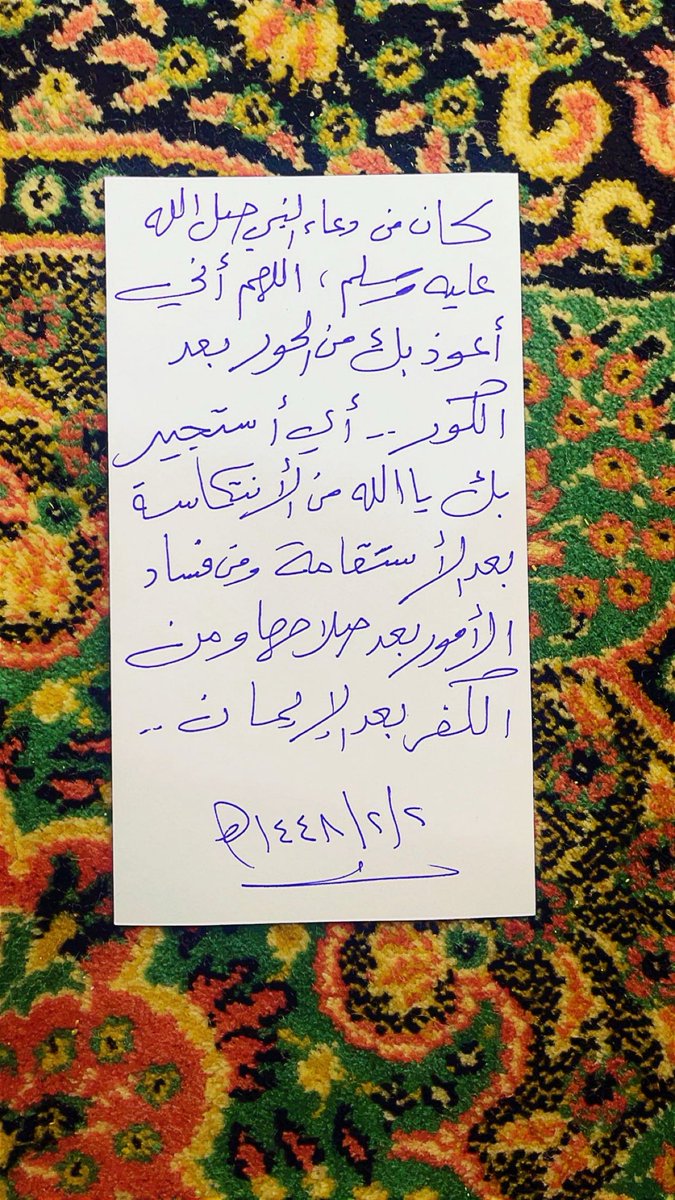 كان من دعاء النبي صل الله
عليه وسلم ، اللهم أني
أعوذ بك من الحور بعد
الكور .. أي أستجير
بك يا الله من الأنتكاسة
بعد الأستقامة ومن فساد
الأمور بعد صلاحها ومن
الكفر بعد الإيمان ..
١٤٤٨/٢/٢هـ